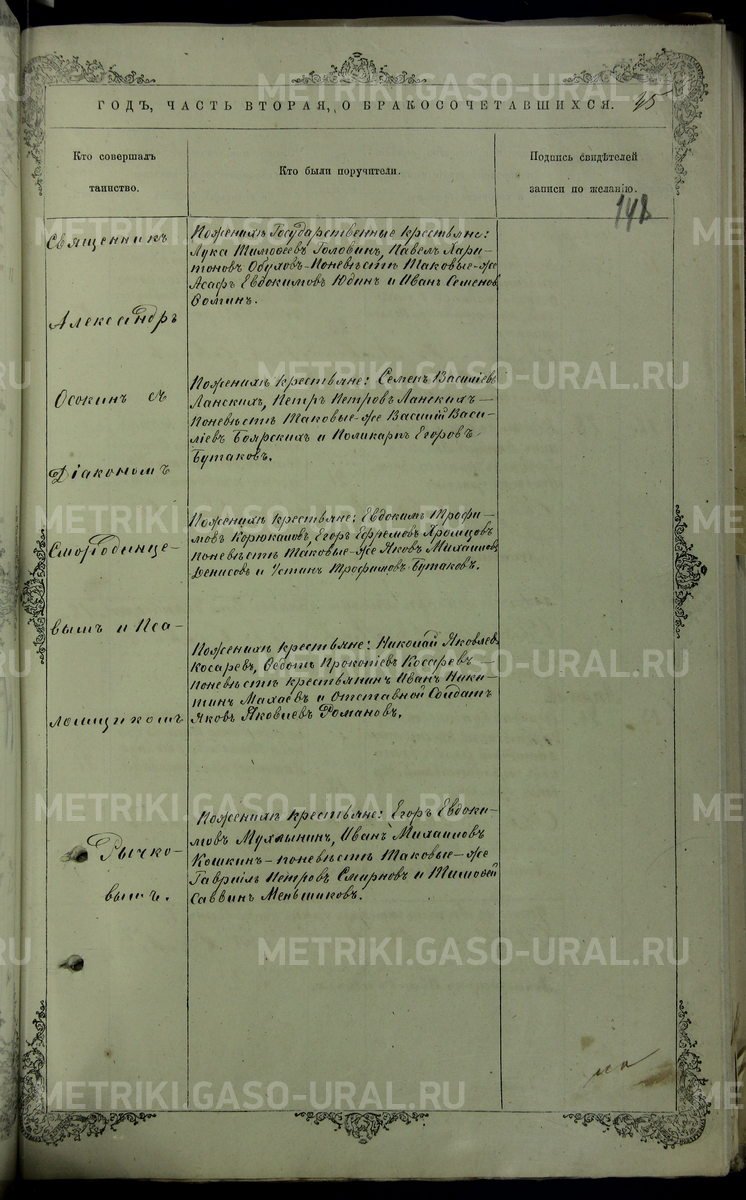 ГОДЪ, ЧАСТЬ ВТОРАЯ, О БРАКОСОЧЕТАВШИХСЯ. 25
Кто совершалъ
таинство.
Кто были поручители.
Подпись свидѣтелей
записи по желанію.
148
Священникъ
Александръ
Осокинъ съ
Діакономъ
Смородинце-
вымъ и Пса-
ломщикомъ
Рычко-
вымъ.
Поженихѣ Государственные крестьяне:
Лука Тимоѳеевъ Головинъ, Павелъ Хари-
тоновъ Обуховъ - Поневѣстѣ таковые-же
Асафъ Евдокимовъ Юдинъ и Иванъ Семеновъ
Ѳоминъ.
Поженихѣ крестьяне: Семенъ Василіевъ
Ланскихъ, Петръ Петровъ Ланскихъ —
Поневѣстѣ таковые-же Василій Васи-
ліевъ Боярскихъ и Поликарпъ Егоровъ
Бутаковъ.
Поженихѣ крестьяне: Евдокимъ Трофи-
мовъ Корюкаловъ, Егоръ Ефремовъ Хромцовъ
поневѣстѣ таковые-же Яковъ Михаиловъ
Денисовъ и Устинъ Трофимовъ Бутаковъ.
Поженихѣ крестьяне: Николай Яковлевъ
Косаревъ, Ѳедотъ Прокопіевъ Косаревъ —
поневѣстѣ крестьянинъ Иванъ Ники-
тинъ Махаевъ и Отставной Солдатъ
Яковъ Яковлевъ Романовъ.
Поженихѣ крестьяне: Егоръ Евдоки-
мовъ Мухлынинъ, Иванъ Михаиловъ
Кошкинъ - поневѣстѣ таковые-же
Гавріилъ Петровъ Смирновъ и Тимоѳей
Саввинъ Меньшиковъ.
METRIKI.GASO-URAL.RU
METRIKI.GASO-URAL.RU
METRIKI.GASO-URAL.RU
METRIKI.GASO-URAL.RU
METRIKI.GASO-URAL.RU
METRIKI.GASO-URAL.RU
METRIKI.GASO-URAL.RU
METRIKI.GASO-URAL.RU